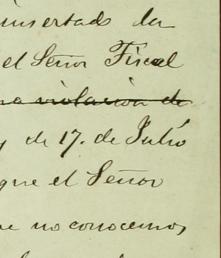 insertado la
el Señor Fiscal
violacion de
y de 17. de Julio
que el Señor
no conocemos,